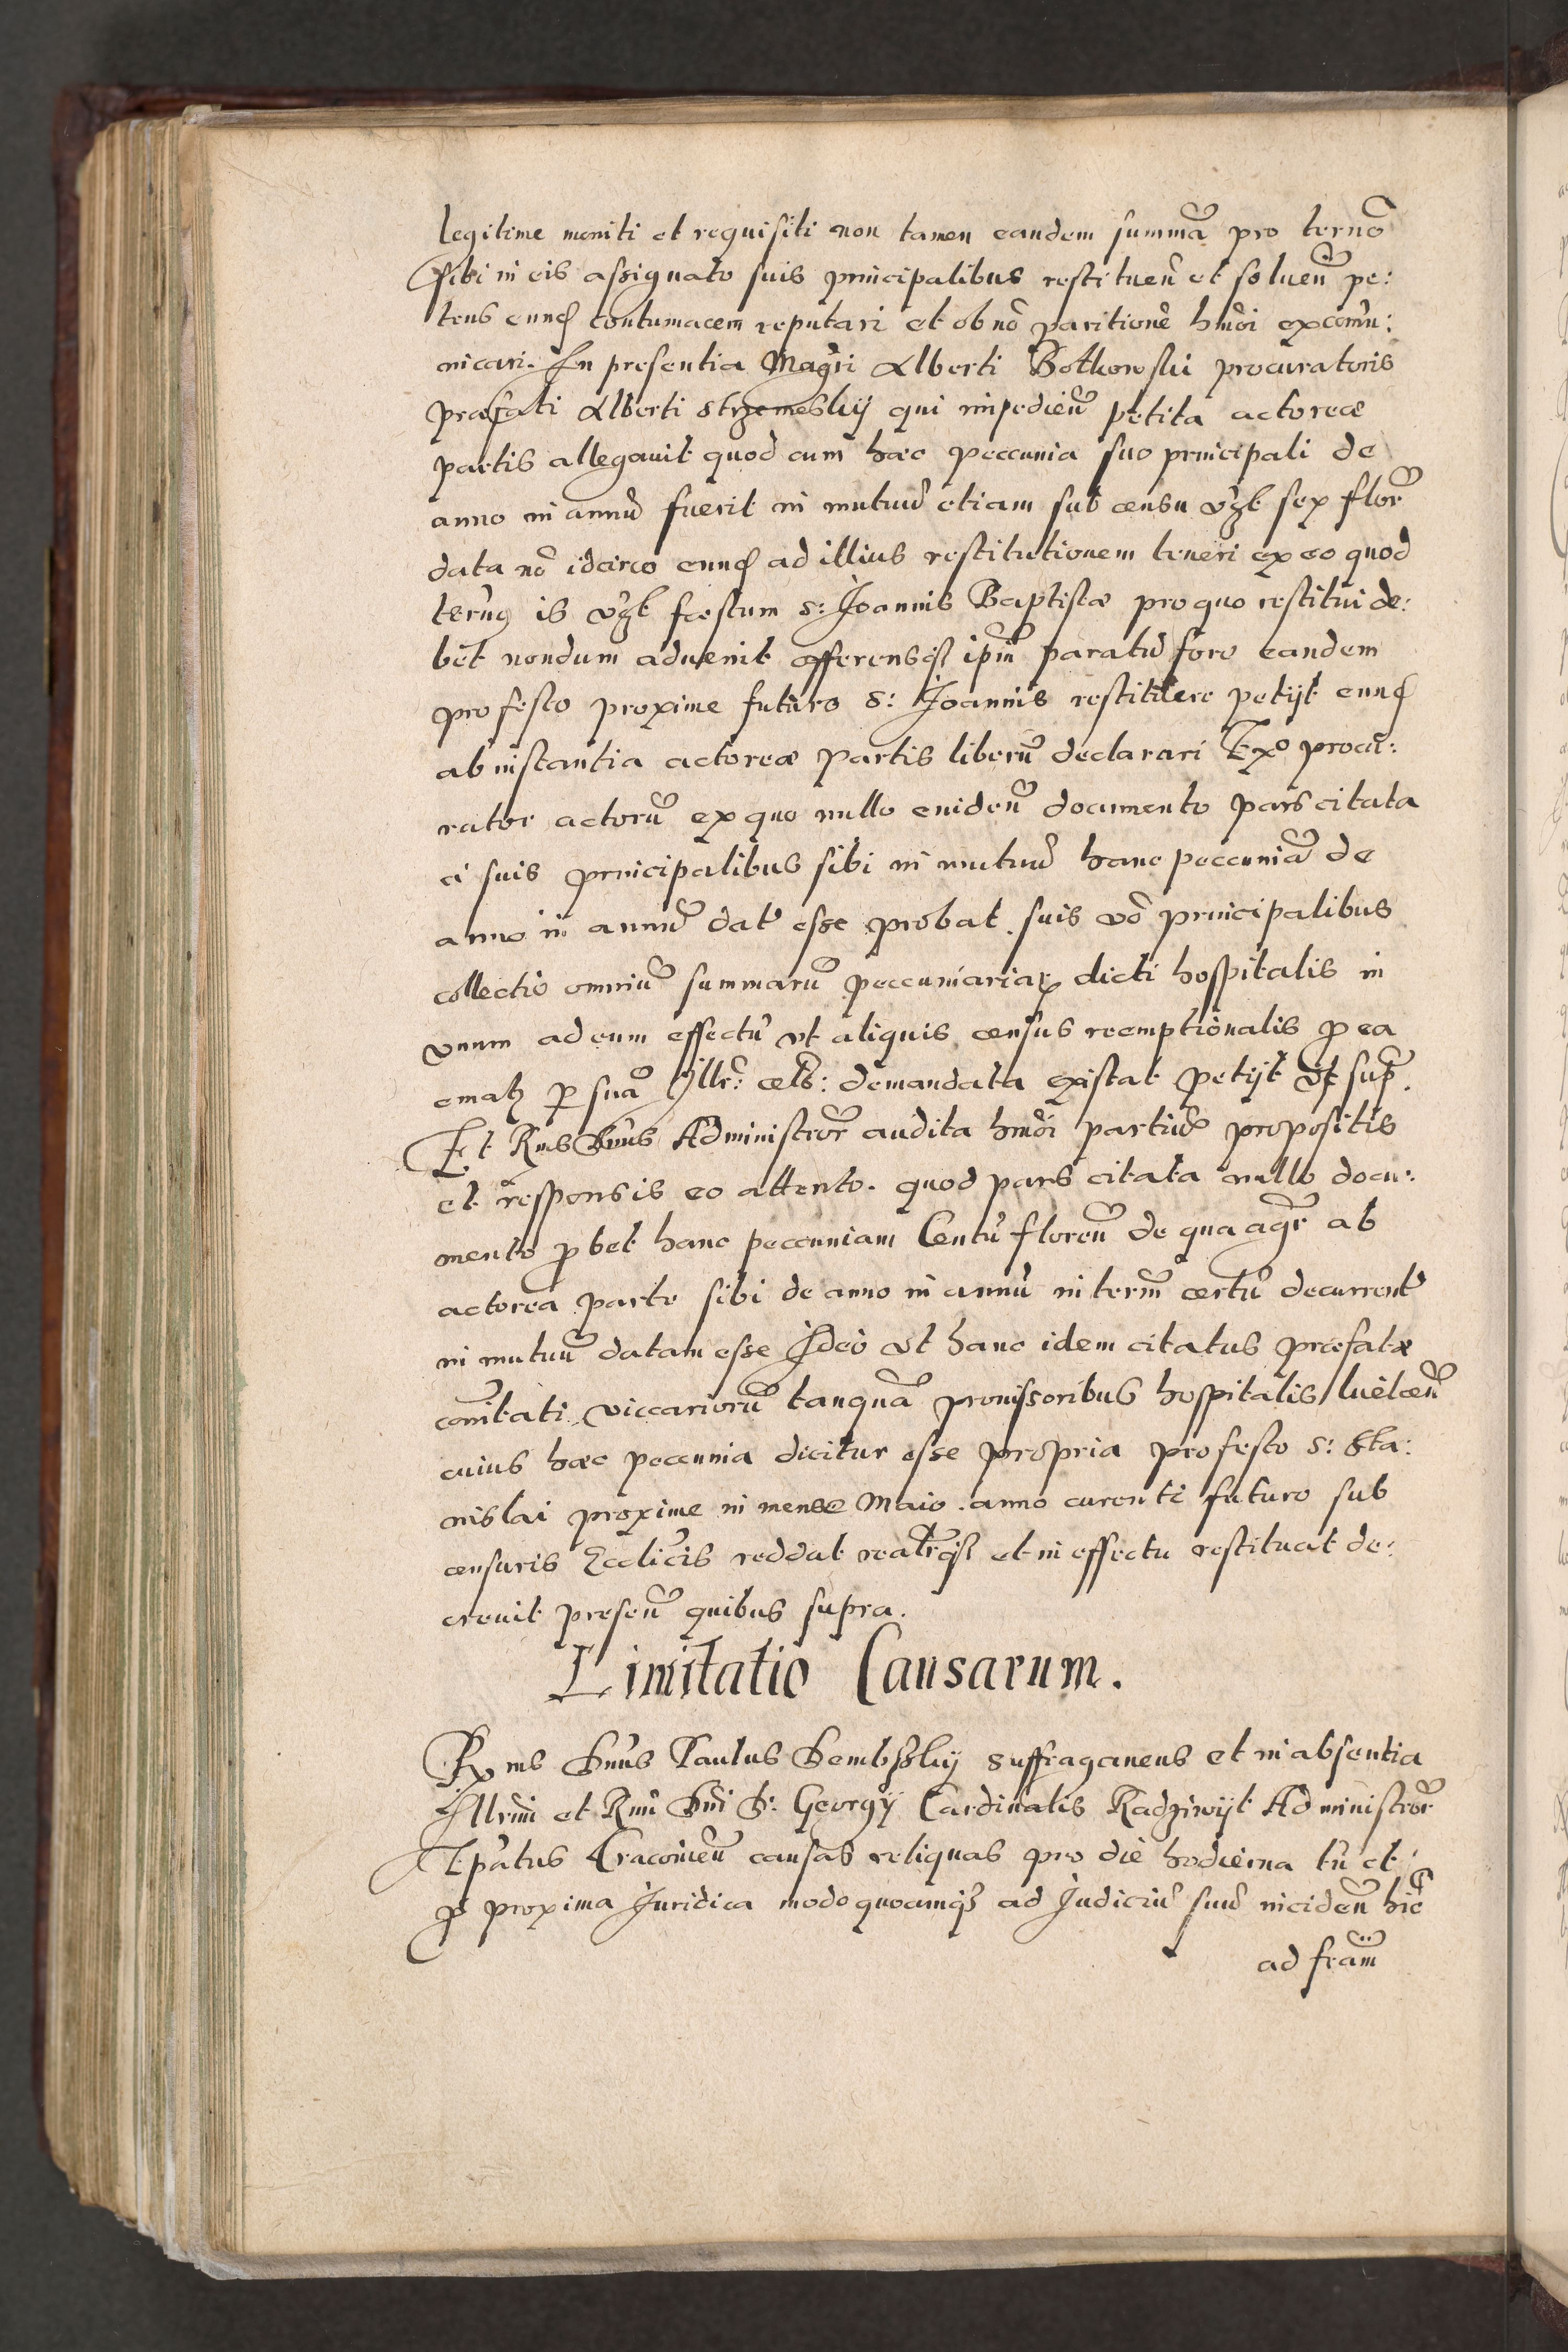 legitime moniti et requisiti non tamen eandem summā pro ternō
sibi in eis assignato suis principalibus restituen̄ et soluen̄ pe:
tens eunđ contumacem reputari et ob nō paritionē hmōi excom̄u:
nicari. In presentia Magri Alberti Botkowski procuratoris
præfati Alberti Strzemeskij qui impedien̄ petita actoreæ
partis allegauit quod cum hæc peccunia suo principali de
anno in annū fuerit in mutuū etiam sub censu vzt sex flor
data nō idcirco eunđ ad illius restitutionem teneri ex eo quod
termꝯ is vzt fæstum S: Joannis Baptistæ pro quo restitui de:
bet nondum aduenit offerensqꝫ ipm̄ paratū fore eandem
pro festo proxime futuro S: Joannis restituere petijt eunđ
ab instantia actoreæ partis liberū declarari Exº procu:
rator actorū ex quo nullo eviden̄ documento pars citata
a suis principalibus sibi in mutuū hanc peccuniā de
anno in annū datā esse probat. suis vō principalibus
collectio omniū summarū peccuniariaꝝ dicti hospitalis in
vnum ad eum effectū vt aliquis census reemptionalis ꝓ ea
ematꝫ ꝑ suā Illr̄: cels: demandata existat petijt vt supr̄.
Et Rms Dnus Administror̄ audita hmōi partiū propositis
et responsis eo attento. quod pars citata nullo docu:
mento ꝓbet hanc peccuniam Centū floren̄ de qua agr̄ ab
actorea parte sibi de anno in annū in term̄ certū decurrent̄
in mutuū datam esse Ideo vt hanc idem citatus præfatæ
com̄itati viccariorū tanquā prouisoribus hospitalis
cuius hæc peccunia dicitur esse propria pro festo S: Sta:
nislai proxime in mense Maio anno curenti futuro sub
censuris Ecclicis reddat realr̄qꝫ et in effectu restituat de:
creuit presen̄ quibus supra.
Limitatio Causarum.
Rms Dnus Paulus Dembskij Suffraganeus et in absentia
Illrmi et Rmi Dni D: Georgij Cardinalis Radziwijł Administror̄
Epatus Cracouien̄ causas reliquas pro die hodierna tū et
ꝓ proxima Juridica modo quocunqꝫ ad Judiciū suū inciden̄ hic
ad fram̄